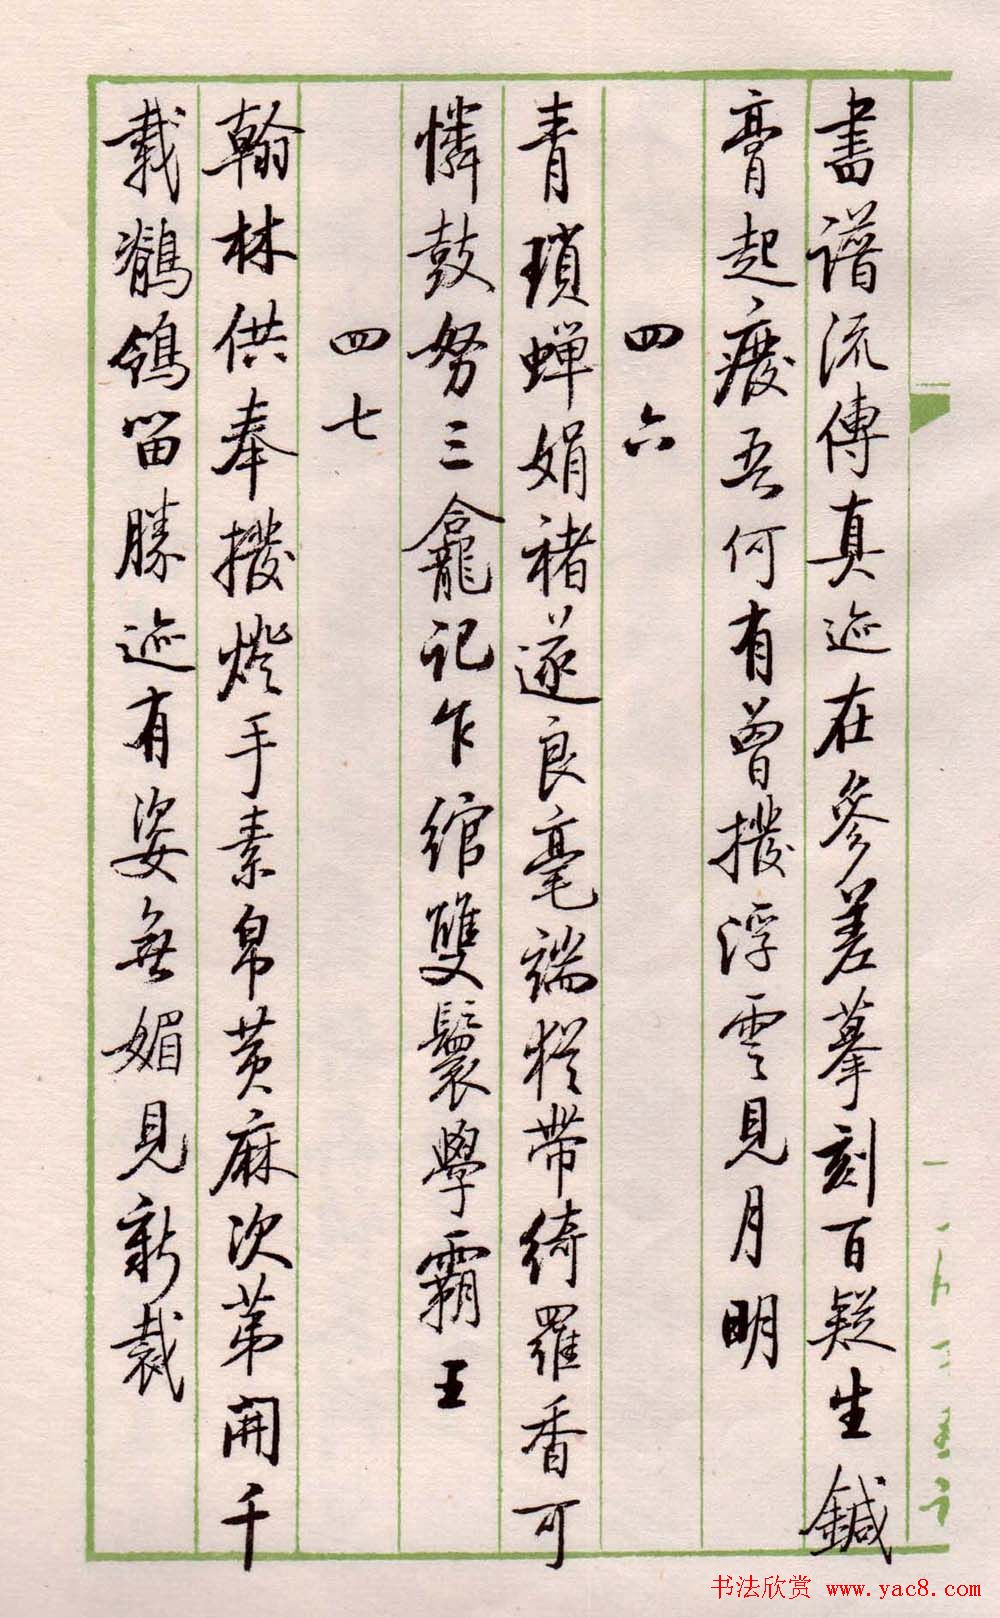 書譜流傳真迹在參差摹刻百疑生鍼
膏起廢吾何有曾撥浮雲見月明
四六
青瑣蟬娟褚遂良毫端猶帶綺羅香可
憐鼓努三龕記乍綰雙鬟學霸王
四七
翰林供奉撥燈手素帛黄麻次第開千
載鶺鴒留勝迹有姿無媚見新裁
书法欣赏 www.yac8.com